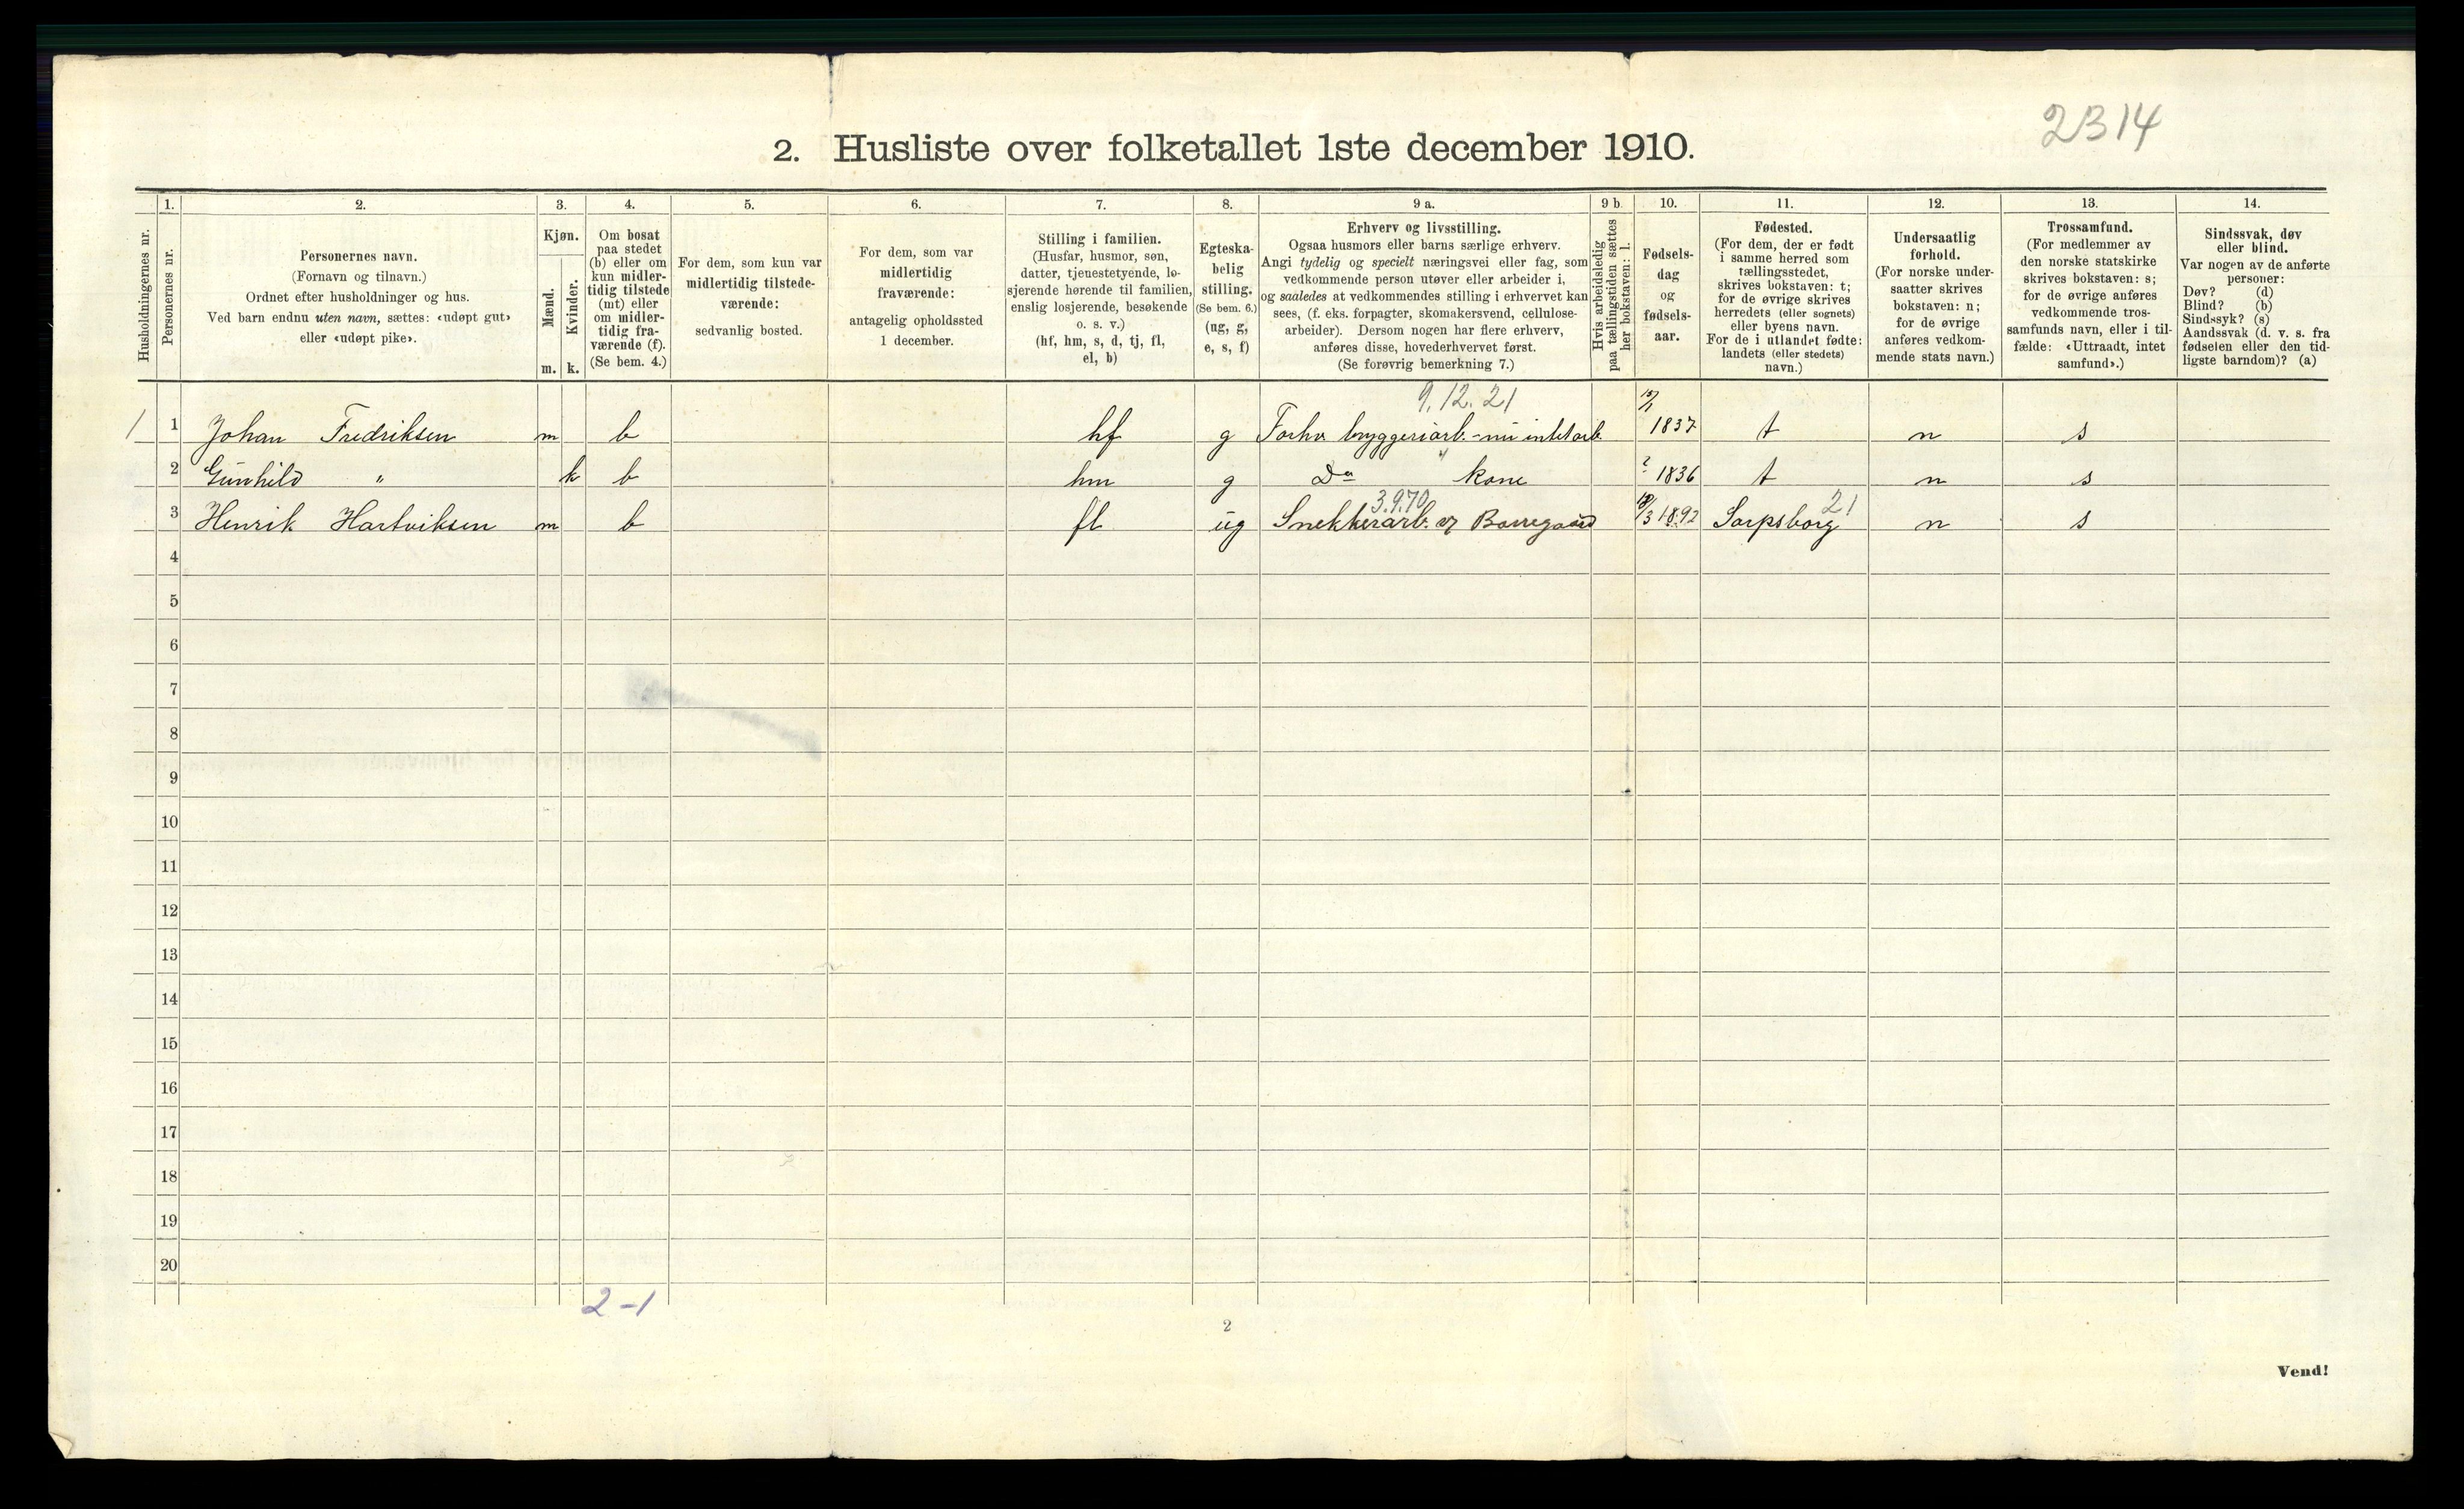 2314
2. Husliste over folketallet 1ste december 1910.
Husholdningernes nr.
1.
Personernes nr.
2.
Personernes navn.
(Fornavn og tilnavn.)
Ordnet efter husholdninger og hus.
Ved barn endnu uten navn, sættes: «udøpt gut»
eller «udøpt pike».
3.
Kjøn.
Mænd.
Kvinder.
m. k.
4.
Om bosat
paa stedet
(b) eller om
kun midler-
tidig tilstede
(mt) eller
om midler-
tidig fra-
værende (f).
(Se bem. 4.)
5.
For dem, som kun var
midlertidig tilstede-
værende:
sedvanlig bosted.
6.
For dem, som var
midlertidig
fraværende:
antagelig opholdssted
1 december.
7.
Stilling i familien.
(Husfar, husmor, søn,
datter, tjenestetyende, lo-
sjerende hørende til familien,
enslig losjerende, besøkende
o. s. v.)
(hf, hm, s, d, tj, fl,
el, b)
8.
Egteska-
belig
stilling.
(Se bem. 6.)
(ug, g,
e, s, f)
9 a.
Erhverv og livsstilling.
Ogsaa husmors eller barns særlige erhverv.
Angi tydelig og specielt næringsvei eller fag, som
vedkommende person utøver eller arbeider i,
og saaledes at vedkommendes stilling i erhvervet kan
sees, (f. eks. forpagter, skomakersvend, cellulose-
arbeider). Dersom nogen har flere erhverv,
anføres disse, hovederhvervet først.
(Se forøvrig bemerkning 7.)
9 b.
Hvis arbeidsledig
paa tællingstiden sættes
her bokstaven: l.
10.
Fødsels-
dag
og
fødsels-
aar.
11.
Fødested.
(For dem, der er født
i samme herred som
tællingsstedet,
skrives bokstaven: t;
for de øvrige skrives
herredets (eller sognets)
eller byens navn.
For de i utlandet fødte:
landets (eller stedets)
navn.)
12.
Undersaatlig
forhold.
(For norske under-
saatter skrives
bokstaven: n;
for de øvrige
anføres vedkom-
mende stats navn.)
13.
Trossamfund.
(For medlemmer av
den norske statskirke
skrives bokstaven: s;
for de øvrige anføres
vedkommende tros-
samfunds navn, eller i til-
fælde: «Uttraadt, intet
samfund».)
14.
Sindssvak, døv
eller blind.
Var nogen av de anførte
personer:
Døv? (d)
Blind? (b)
Sindssyk? (s)
Aandssvak (d. v. s. fra
fødselen eller den tid-
ligste barndom)? (a)
9.12.21
1 1 Johan Fredriksen m b hf g Forhv bryggeriarb. - nu intet arb. 1837 t n s
2 Gunhild " k b hm g Do kone ? 1836 t n s
3.9.70 21
3 Henrik Hartviksen m b fl ug Snekkerarb. Borregaard 18/3 1892 Sarpsborg n s
4
5
6
7
8
9
10
11
12
13
14
15
16
17
18
19
20
2-1
2
Vend!